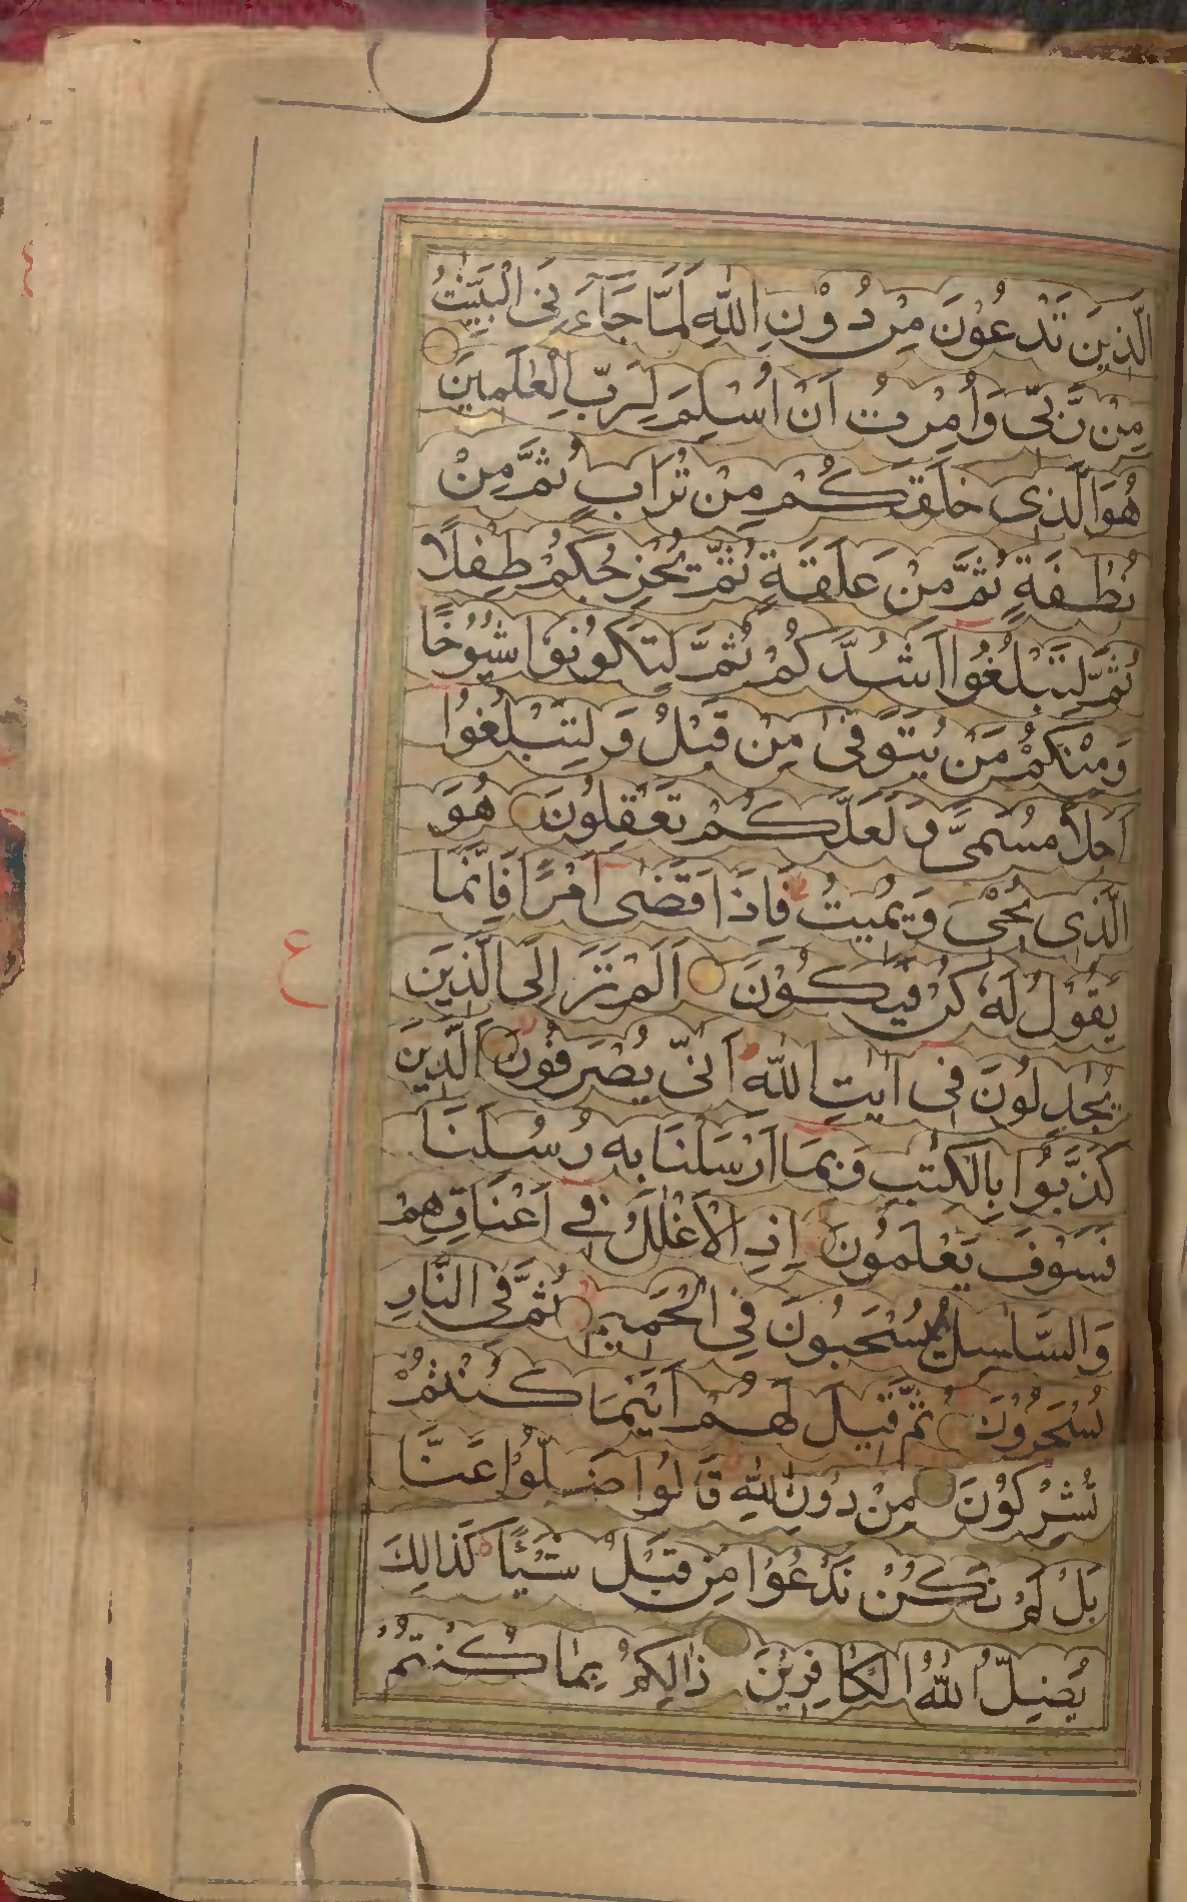 الَّذِينَ تَدْعُونَ مِنْ دُوْنِ اللّٰهِ لَمَّا جَآءَنِیَ الْبَيِّنٰتُ
مِنْ رَّبِّی وَاُمِرْتُ اَنْ اُسْلِمَ لِرَبِّ الْعٰلَمِينَ
هُوَ الَّذِی خَلَقَكُمْ مِنْ تُرَابٍ ثُمَّ مِنْ
نُطْفَةٍ ثُمَّ مِنْ عَلَقَةٍ ثُمَّ يُخْرِجُكُمْ طِفْلًا
ثُمَّ لِتَبْلُغُوا اَشُدَّكُمْ ثُمَّ لِتَكُونُوا شُيُوْخًا
وَمِنْكُمْ مَنْ يُتَوَفّٰی مِنْ قَبْلُ وَلِتَبْلُغُوا
اَجَلًا مُسَمًّی وَلَعَلَّكُمْ تَعْقِلُونَ هُوَ
الَّذِی يُحْیٖ وَيُمِيتُ فَاِذَا قَضٰی اَمْرًا فَاِنَّمَا
يَقُوْلُ لَهٗ كُنْ فَيَكُوْنَ اَلَمْ تَرَ اِلَی الَّذِيْنَ
يُجٰدِلُوْنَ فِی اٰيٰتِ اللّٰهِ اَنّٰی يُصْرَفُوْنَ الَّذِينَ
كَذَّبُوْا بِالْكِتٰبِ وَبِمَا اَرْسَلْنَا بِهٖ رُسُلَنَا
فَسَوْفَ يَعْلَمُوْنَ اِذِ الْاَغْلٰلُ فِی اَعْنَاقِهِمْ
وَالسَّلَاسِلُ يُسْحَبُونَ فِی الْحَمِيْمِ ثُمَّ فِی النَّارِ
يُسْجَرُوْنَ ثُمَّ قِيْلَ لَهُمْ اَيْنَمَا كُنْتُمْ
تُشْرِكُوْنَ مِنْ دُوْنِ اللّٰهِ قَالُوا ضَلُّوْا عَنَّا
بَلْ لَمْ نَكُنْ نَدْعُوْا مِنْ قَبْلُ شَيْئًا كَذَالِكَ
يُضِلُّ اللّٰهُ الْكَافِرِيْنَ ذَالِكُمْ بِمَا كُنْتُمْ
ع